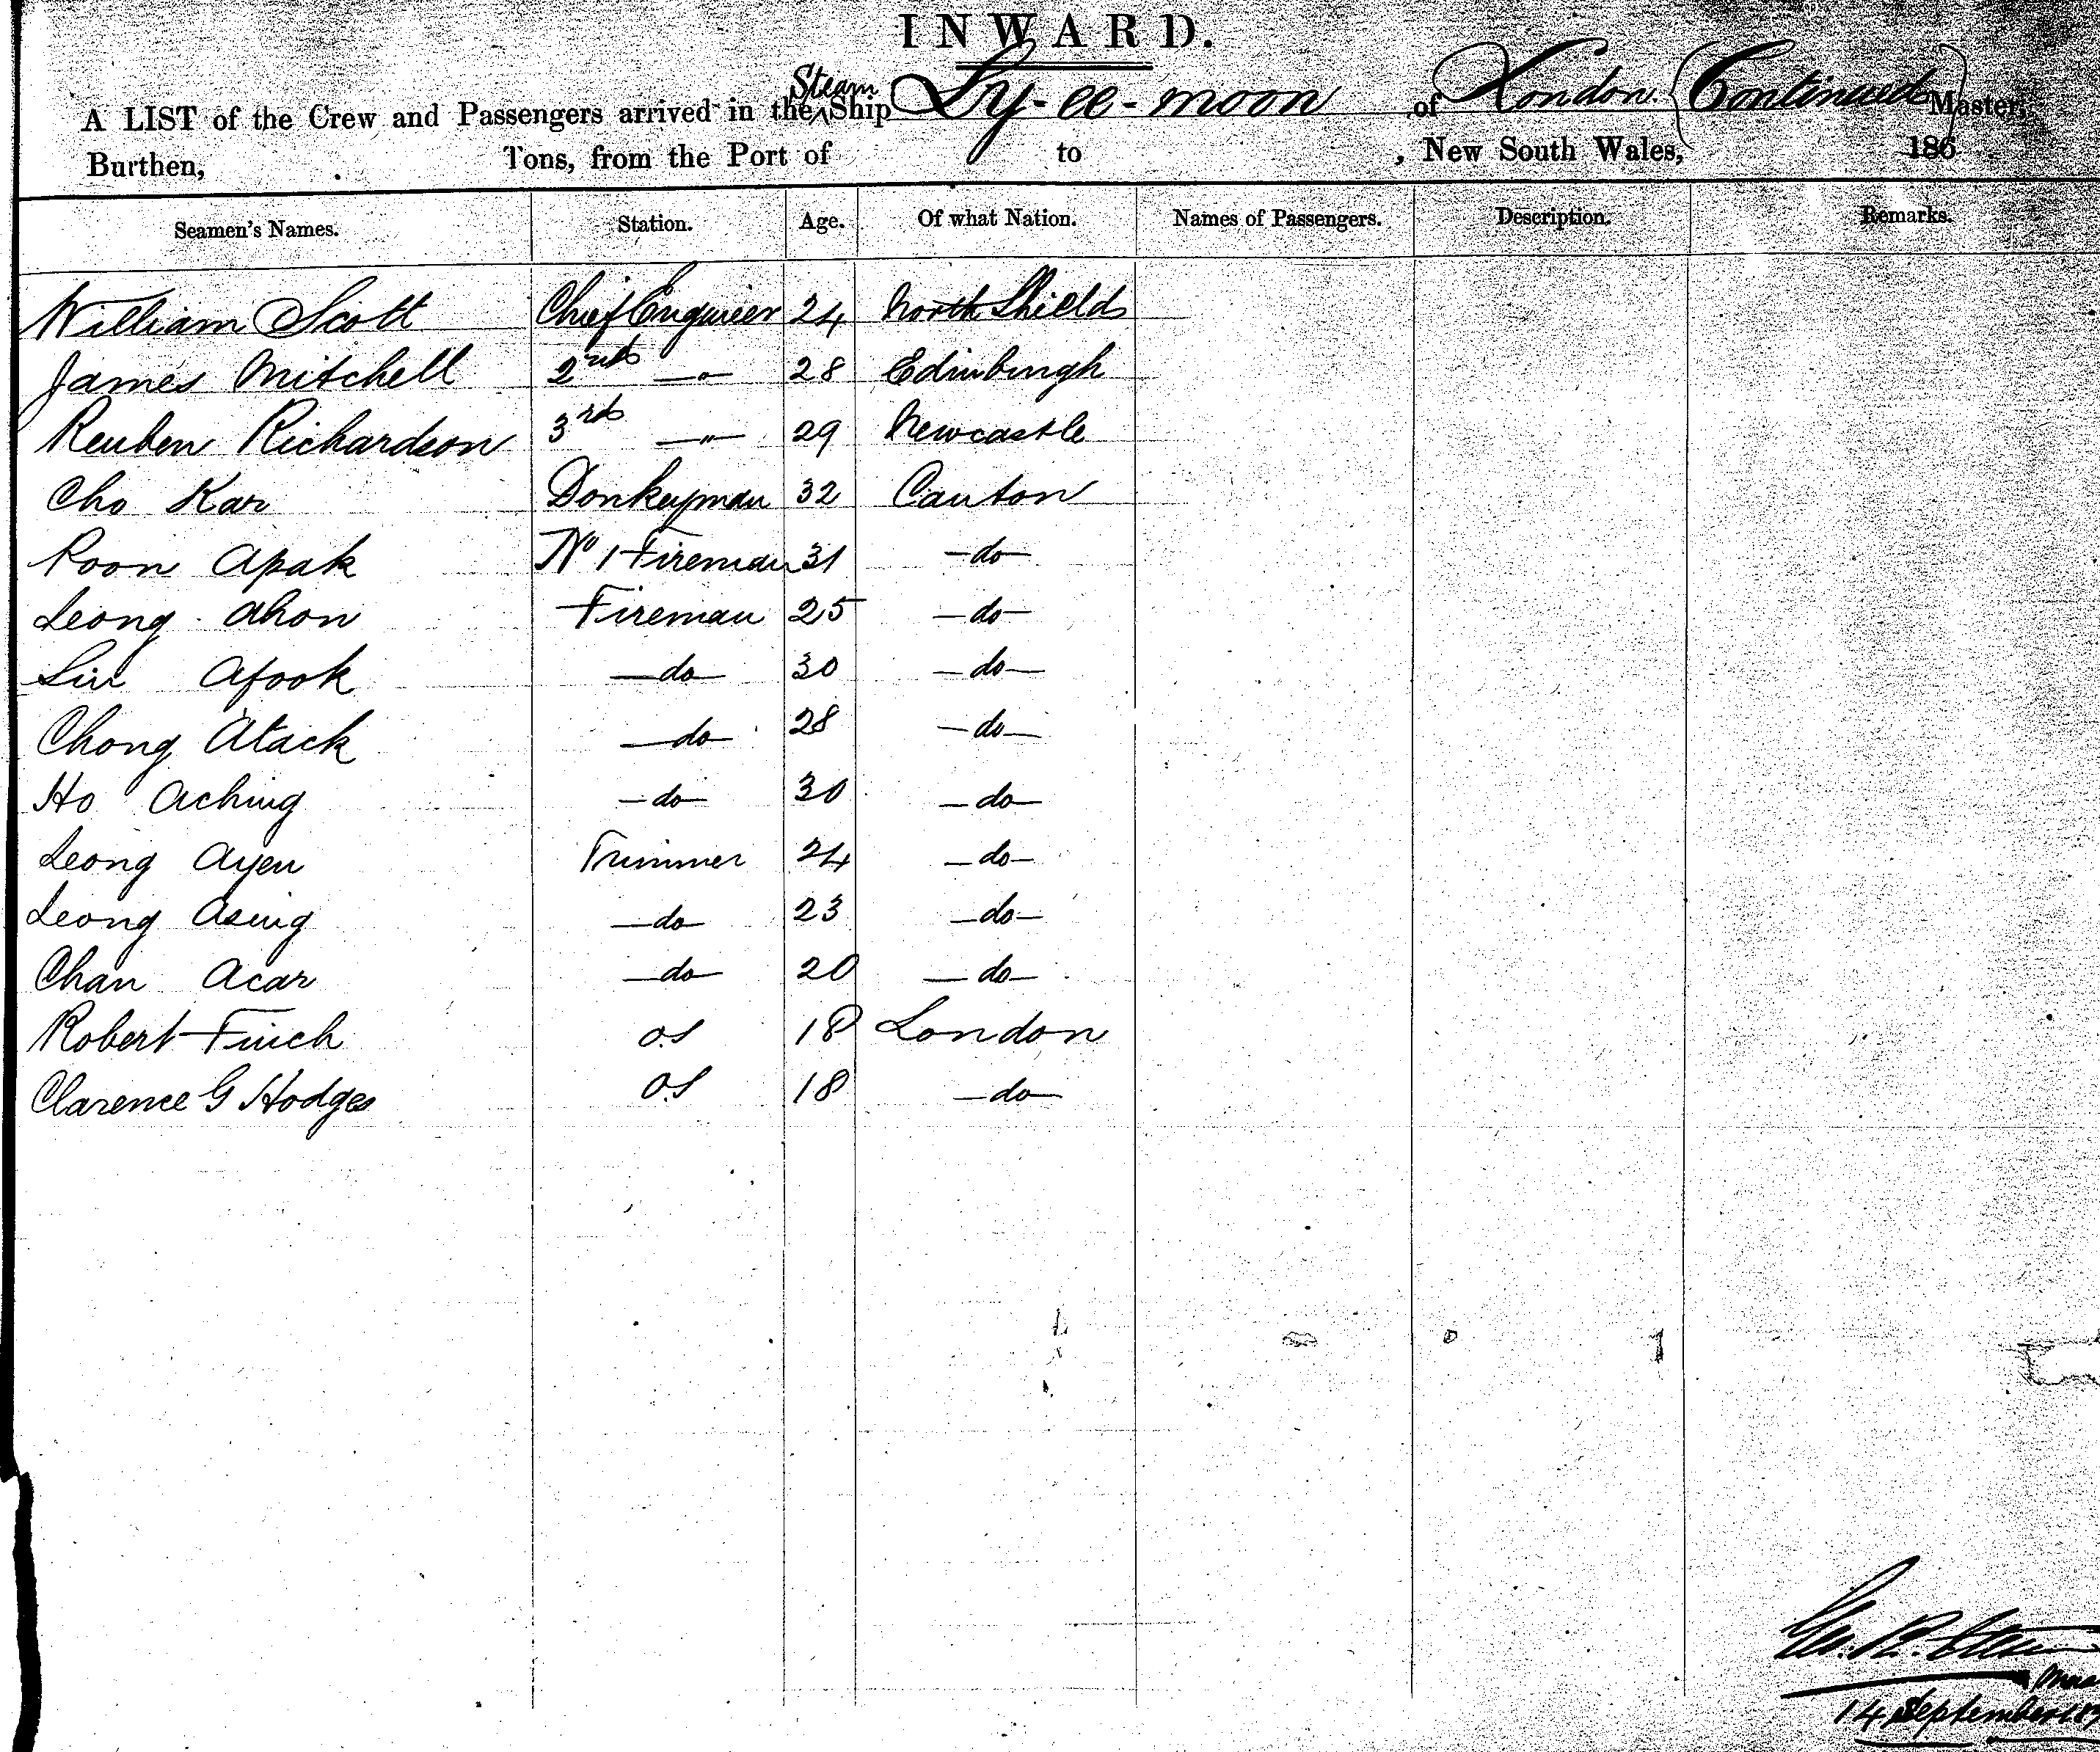 INWARD.
A LIST of the Crew and Passengers arrived in the Steam Ship Ly-ee-moon of London. (Continued) Master,
Burthen, Tons, from the Port of to , New South Wales, 186
Seamen's Names. Station. Age. Of what Nation. Names of Passengers. Description. Remarks.
William Scott Chief Engineer 24 North Shields
James Mitchell 2nd —"— 28 Edinburgh
Reuben Richardson 3rd —"— 29 Newcastle
Cho Kar Donkeyman 32 Canton
Poon Apak No 1 Fireman 31 —do—
Leong Ahon Fireman 25 —do—
Lin Afook —do— 30 —do—
Chong Atack —do— 28 —do—
Ho Aching —do— 30 —do—
Leong Ayen Trimmer 24 —do—
Leong Asing —do— 23 —do—
Chan Acar —do— 20 —do—
Robert Finch O.S 18 London
Clarence G Hodges O.S 18 —do—
14 September 187